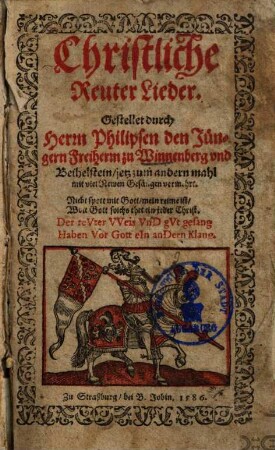 Christliche
Reuter Lieder.
Gestellet durch
Herrn Philipsen den Jün-
gern Freiherrn zu Winnenberg vnd
Beihelstein / jetz zum andern mahl
mit viel Newen Gesängen vermehrt.
Nicht spott mit Gott / mein reime ist /
Weil Gott solchs thet nie kein Christ.
Der reVter VVeis VnD gVt gesang
Haben Vor Gott eIn anDern Klang.
Zu Straßburg / bei B. Jobin, 1586.